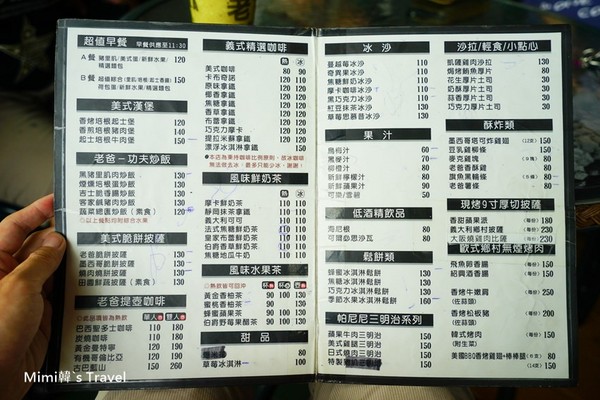 超值早餐 早餐供應至11:30
A餐 豬里肌/美式蛋/新鮮水果/ 120
精選麵包
B餐 超值綜合(里肌/培根/起士香腸) 150
荷包蛋/新鮮水果/
精選麵包
美式漢堡
香烤培根起士堡 120
香煎培根豬肉堡 140
起士培根牛肉堡 150
老爸一功夫炒飯
黑豬里肌肉炒飯 130
煙燻培根蛋炒飯 130
吉士腸香腸炒飯 130
客家鹹豬肉炒飯 130
蔬菜總匯炒飯(素食) 120
美式脆餅披薩
老爸脆餅披薩 130
墨西哥脆餅披薩 130
燒肉燒餅披薩 130
田園鮮蔬披薩(素食) 130
老爸提壺咖啡
單人 雙人
巴西聖多士咖啡 110 180
炭燒咖啡 110 180
黃金曼特寧 120 190
有機哥倫比亞 120 190
古巴藍山
義式精選咖啡
熱 冰
美式咖啡 80 90
卡布奇諾 110 120
原味拿鐵 110 120
榛香拿鐵 120 120
焦糖拿鐵 120 120
香草拿鐵 120 120
布雷拿鐵 120 120
巧克力摩卡 120 120
提拉米蘇拿鐵 120 120
漂浮冰淇淋拿鐵 150
風味鮮奶茶
熱 冰
摩卡鮮奶茶 110 110
靜岡抹茶拿鐵 110 110
義大利可可 110 110
法式焦糖鮮奶茶 110 110
皇家布蕾鮮奶茶 110 110
伯爵香草鮮奶茶 110 110
焦糖地瓜牛奶 110 110
風味水果茶
黃金香柚茶 90 100 130
蜜桃香柚茶 90 130
蜂蜜蘋果茶 90 100 130
伯爵野莓果醋茶 90 100 130
甜品
草莓冰淇淋 100
冰沙
蔓越莓冰沙 110
奇異果冰沙 110
焦糖鮮奶冰沙 110
摩卡咖啡冰沙 110
黑巧克力冰沙 110
紅豆抹茶冰沙 130
草莓思慕昔冰沙 130
果汁
烏梅汁 60
黑麥汁 70
柳橙汁 80
新鮮檸檬汁 80
新鮮蘋果汁 90
可樂/雪碧 50
低酒精飲品
海尼根 80
可爾必思沙瓦 80
鬆餅類
蜂蜜冰淇淋鬆餅 130
焦糖冰淇淋鬆餅 130
巧克力冰淇淋鬆餅 130
季節水果冰淇淋鬆餅 160
帕尼尼三明治系列
蘋果牛肉三明治 150
美式雞腿三明治 150
日式燒肉三明治 150
特製豬 三明治 150
沙拉/輕食/小點心
凱薩雞肉沙拉 130
焗烤鮪魚厚片 80
花生厚片土司 30
奶酥厚片土司 30
蒜香厚片土司 30
巧克力厚片土司 30
酥炸類
墨西哥塔可炸雞翅 (12支) 150
豆乳雞柳條 150
麥克雞塊 80
老爸香酥雞 80
旗魚黑輪條 80
老爸薯條 80
現烤9寸厚切披薩
香甜蘋果派 (每份) 180
義大利鄉村披薩 (每份) 230
大阪燒雞肉比薩 (每份) 230
歐式鄉村無煙烤肉
飛魚卵香腸 (每份) 150
紹興酒香腸 (每份) 150
香烤牛嫩肩 (每份) 250
(佐蒜頭)
香烤松板豬 (每份) 200
(佐蒜頭)
韓式烤肉 (每份) 250
(附生菜)
美國BBQ香烤雞翅+棒棒腿 350
Mimi韓's Travel